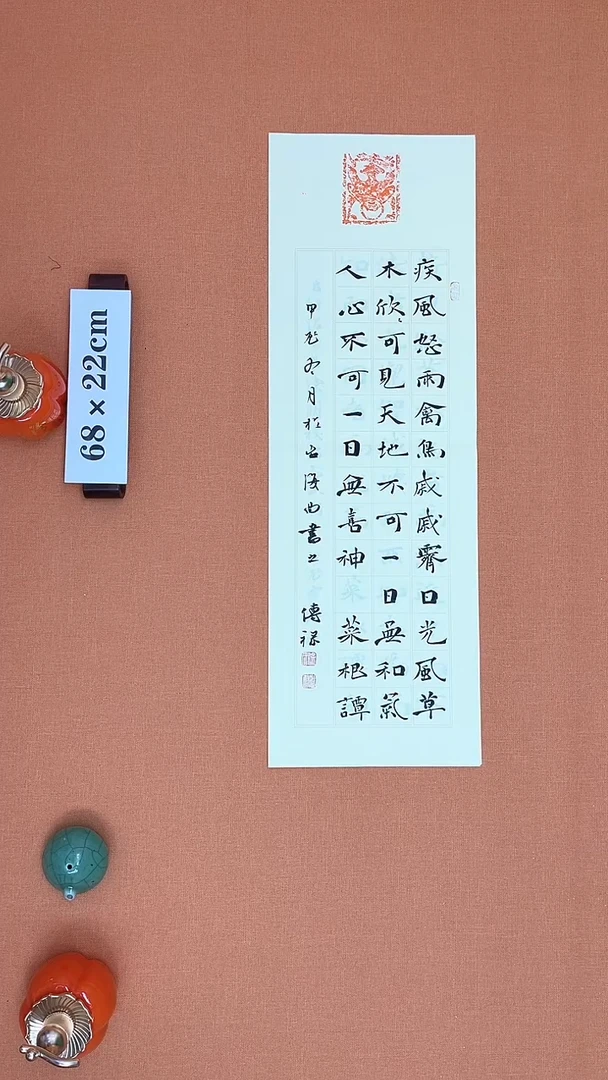 疾風怒雨禽鳥戚戚霽日光風草
木欣〻可見天地不可一日無和氣
人心不可一日無喜神 菜根譚
甲辰冬月於古海曲書之 傳祿
68×22cm